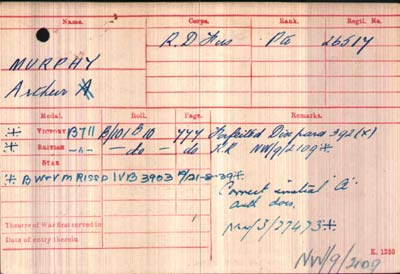 Name. Corps. Rank. Regtl. No.
R.D.Fus Pte 26517
MURPHY
Arthur
Medal. Roll. Page. Remarks.
VICTORY B711 B/101 B10 777 Forfeited Dis para 392(x)
BRITISH -"- -do- do K.R NW/9/2109
STAR
BWr VM Rissd IVB 3903
Correct initial "A"
auth docs.
Theatre of War first served in
Date of entry therein
K. 1380
NW/9/2109